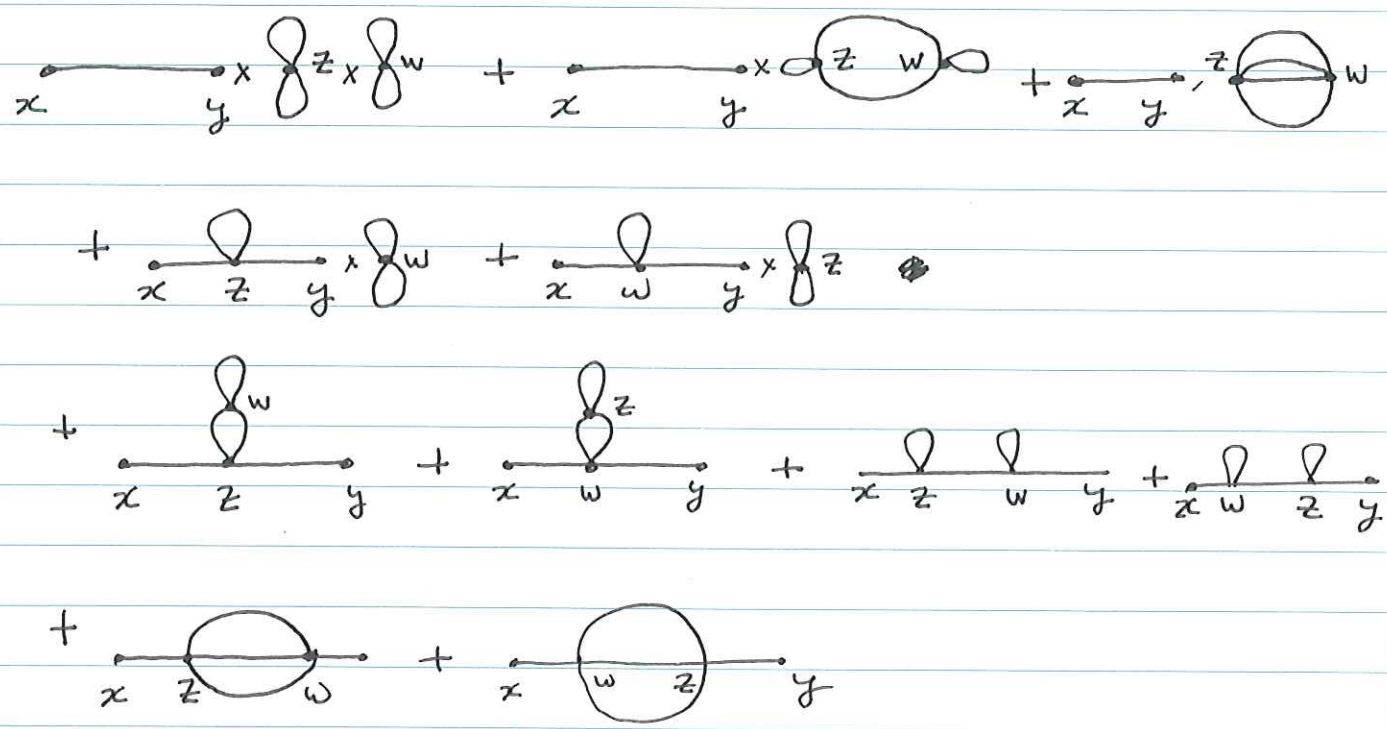 x y × z × w + x y × z w + x y , z w
+ x z y × w + x w y × z
+ x z y w + x w y z + x z w y + x w z y
+ x z w + x w z y